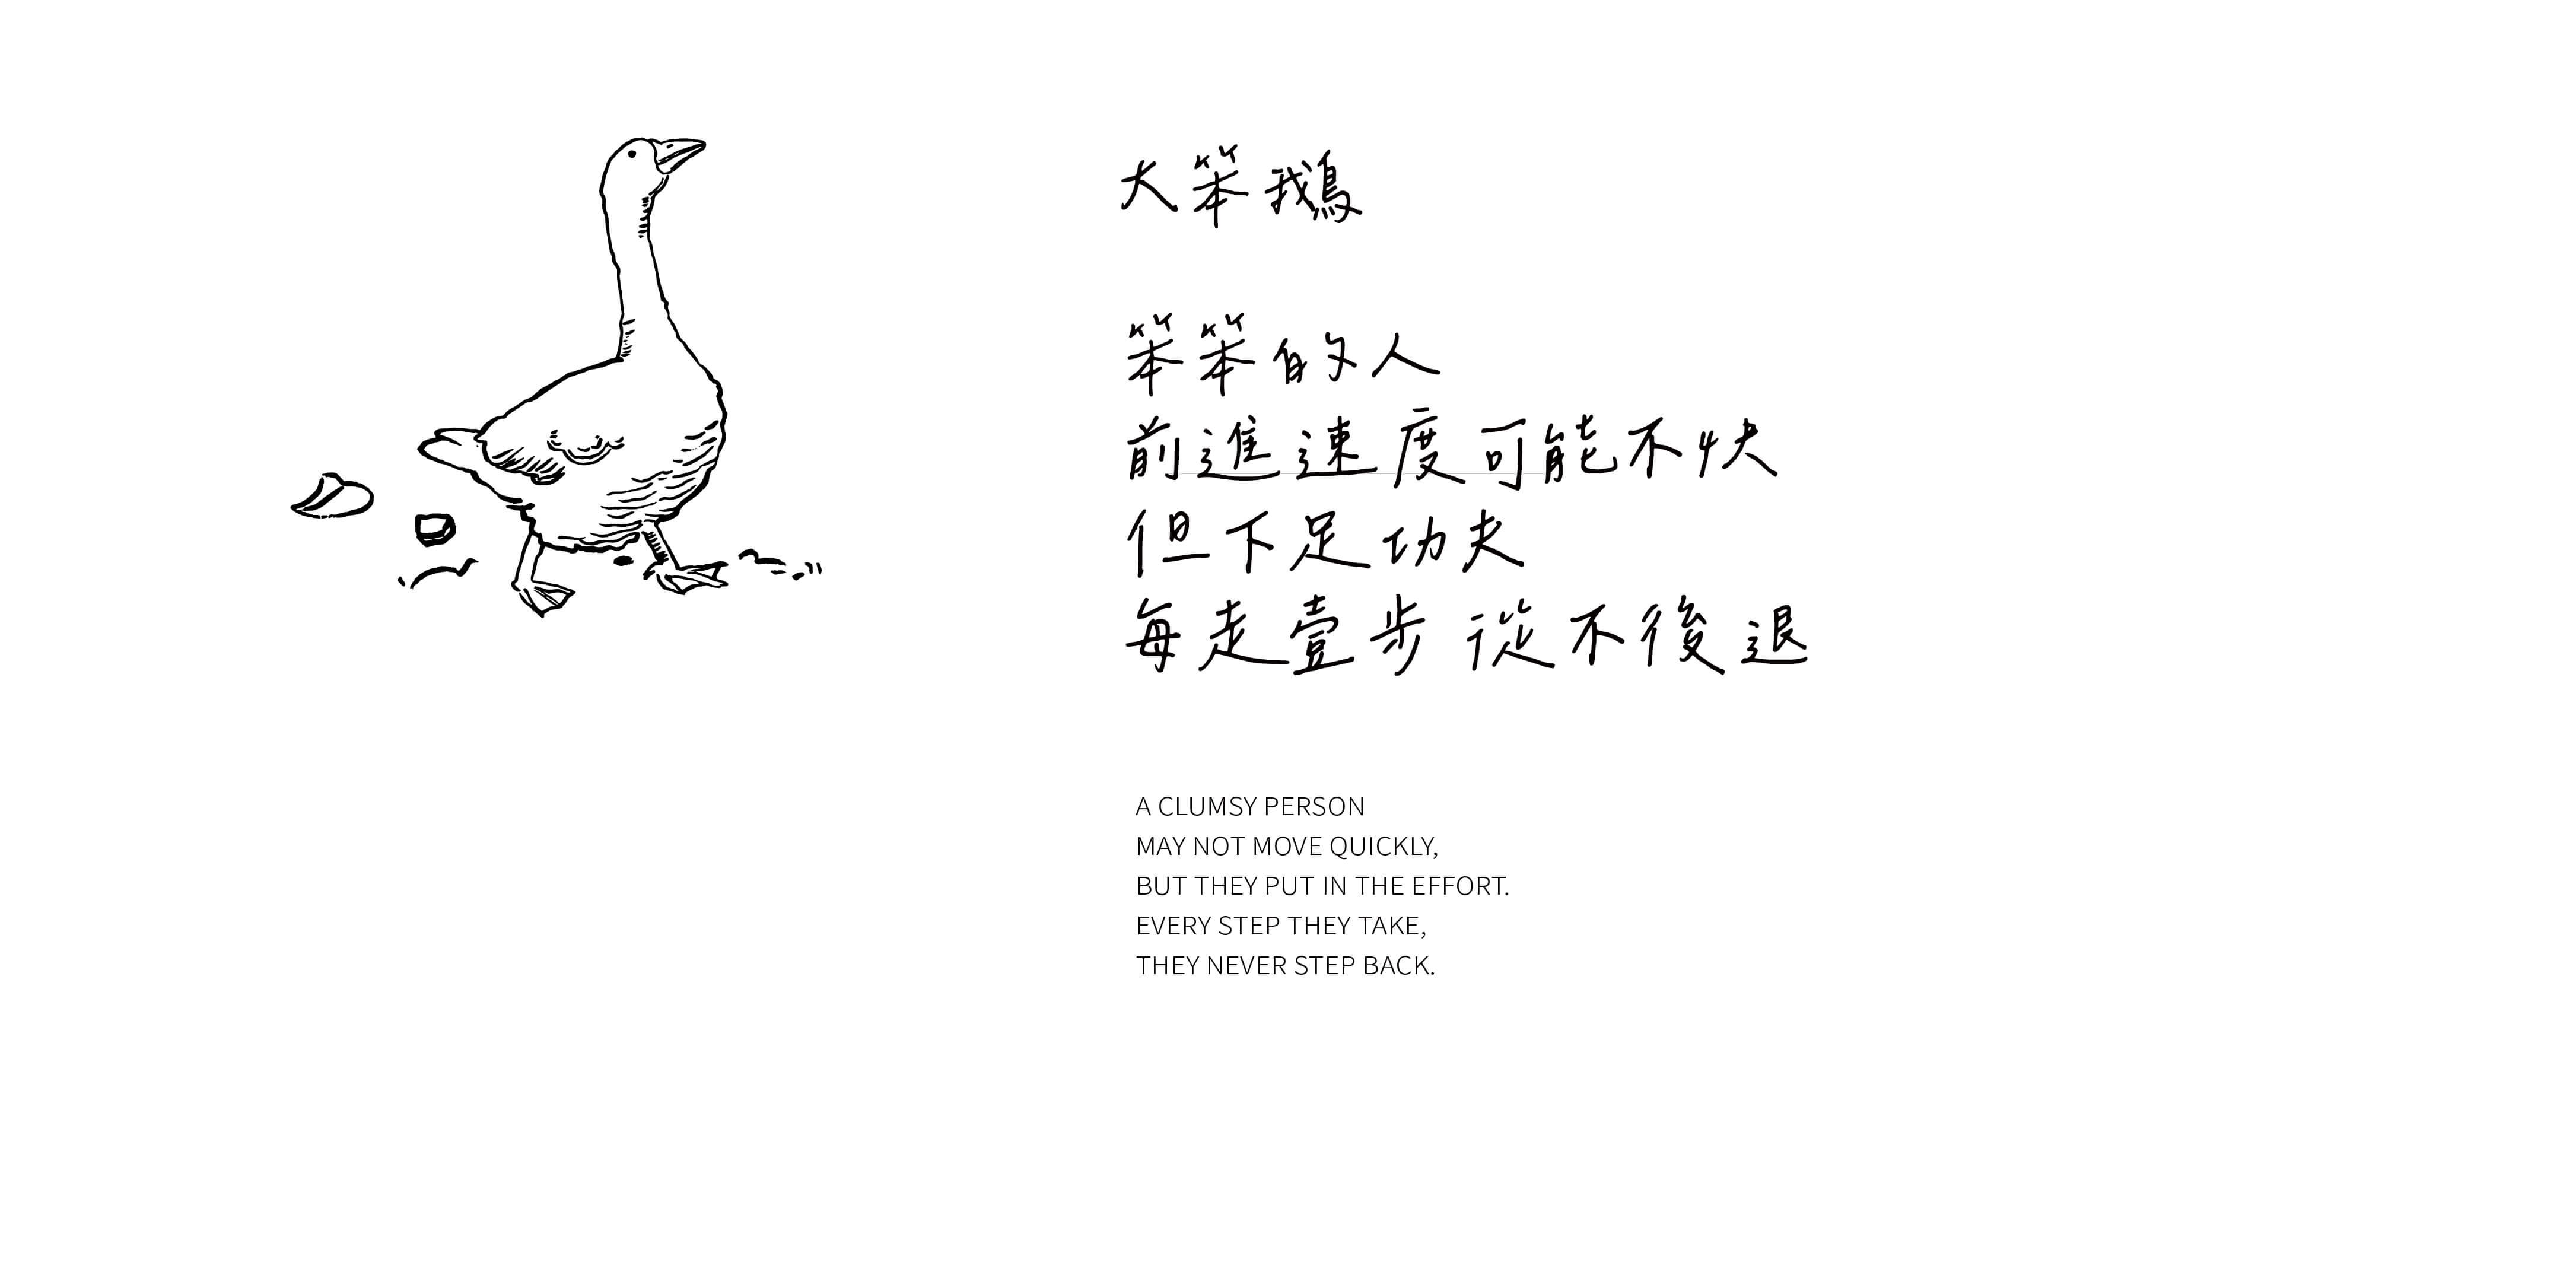 大笨鵝
笨笨的人
前進速度可能不快
但下足功夫
每走壹步 從不後退
A CLUMSY PERSON
MAY NOT MOVE QUICKLY,
BUT THEY PUT IN THE EFFORT.
EVERY STEP THEY TAKE,
THEY NEVER STEP BACK.